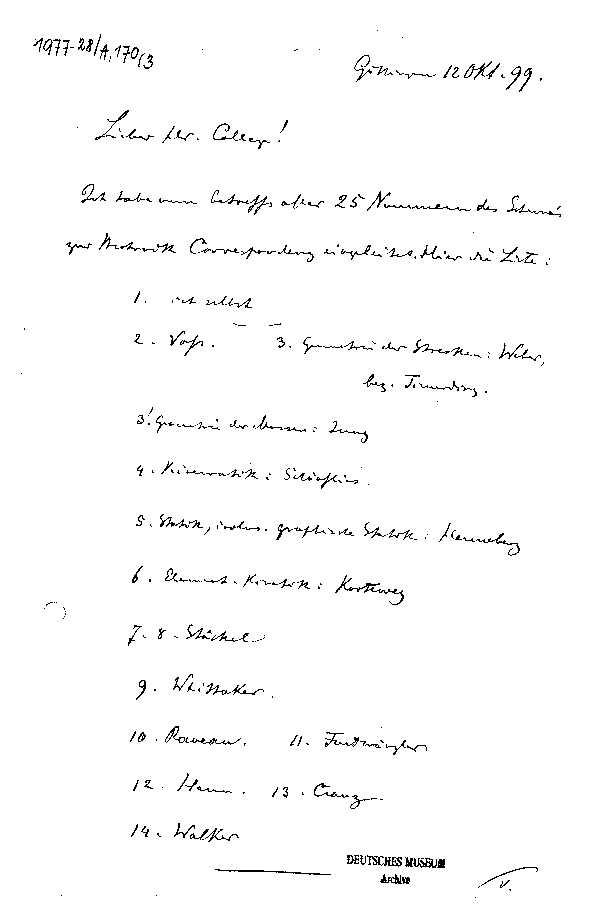 1977-28/A,170/3
Göttingen 12 Okt. 99.
Lieber Hr. College!
Ich habe nun betreffs aller 25 Nummern des Schema's
zur Mechanik Correspondenz eingeleitet. Hier die Liste:
1. ich selbst
2. Voss. 3. Geometrie der Strecken: Weber,
bez. Timerding.
3'. Geometrie der Massen: Jung
4. Kinematik: Schönflies.
5. Statik, inclus. graphische Statik: Henneberg
6. Element. Kinetik: Korteweg
7. 8. Stäckel
9. Whittaker.
10. Raveau. 11. Furtwängler
12. Hann. 13. Cranz.
14. Walker
DEUTSCHES MUSEUM
Archive
v.